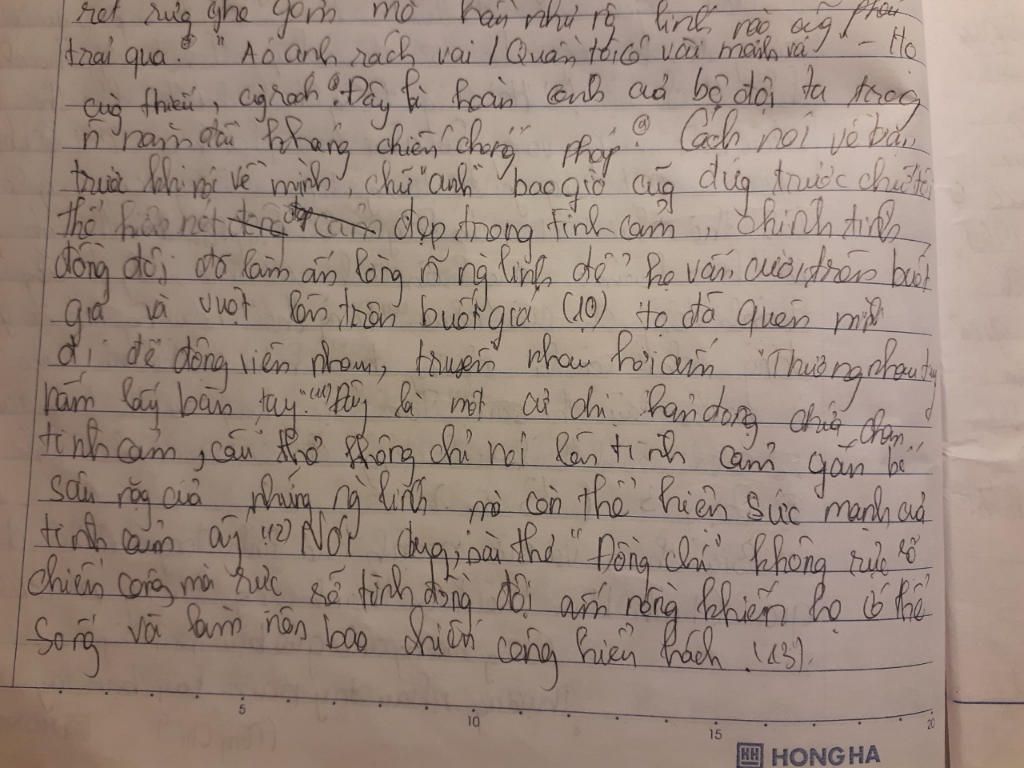 rét rừng ghê gớm mà hầu như ng lính nào cũg phải
trải qua. "Áo anh rách vai / Quần tôi có vài mảnh vá" - Họ
cùg thiếu, cùg rách. Đây là hoàn cảnh của bộ đội ta trog
n~ năm đầu kháng chiến chống Pháp. Cách nói về bạn
trước khi nói về mình, chữ "anh" bao giờ cũg đứg trước chữ tôi
thể hiện nét đẹp trong tình cảm, chính tình
đồng đội đã làm ấm lòng n~ ng lính để họ vẫn cười trên buốt
giá và vượt lên trên buốt giá (10) họ đã quên mình
đi để động viên nhau, truyền nhau hơi ấm "Thương nhau tay
nắm lấy bàn tay". (11) Đây là một cử chỉ hành động chứa chan
tình cảm, câu thơ không chỉ nói lên tình cảm gắn bó
sâu nặg của những ng lính mà còn thể hiện sức mạnh của
tình cảm ấy (12) Nói chug, bài thơ "Đồng chí" không rực rỡ
chiến công mà rực rỡ tình đồng đội ấm nồng khiến họ có thể
sống và làm nên bao chiến công hiển hách. (13).
5 10 15 20
HH HONG HA